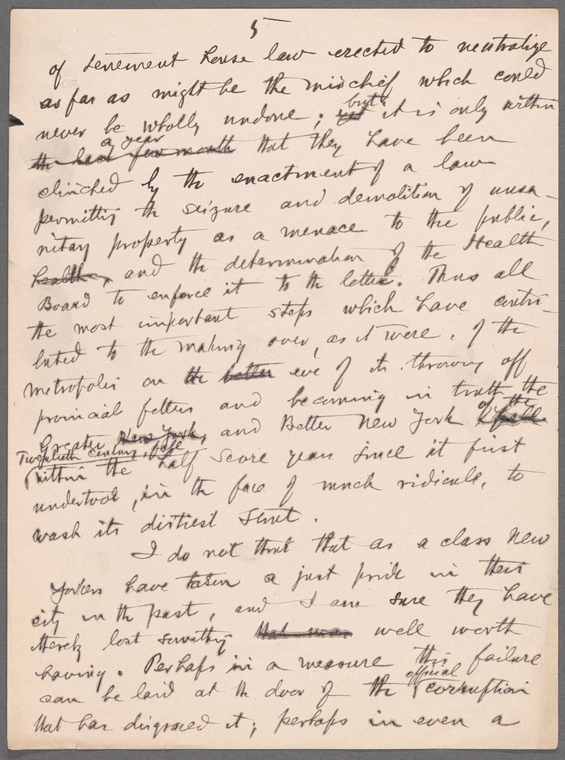 5
of tenement house law erected to neutralize
as far as might be the mischief which could
never be wholly undone; yet but it is only within
the last few months a year that they have been
clinched by the enactment of a law
permitting the seizure and demolition of unsa-
nitary property as a menace to the public,
health, and the determination of the Health
Board to enforce it to the letter. Thus all
the most important steps which have contri-
buted to the making over, as it were, of the
metropolis on the better eve of its throwing off
provincial fetters and becoming in truth the
Greater New York, and Better New York of the
Twentieth Century, fall
within the half score years since it first
undertook, in the face of much ridicule, to
wash its dirtiest shirt.
I do not think that as a class New
Yorkers have taken a just pride in their
city in the past, and I am sure they have
thereby lost something that was well worth
having. Perhaps in a measure this failure
can be laid at the door of the official corruption
that has disgraced it; perhaps in even a